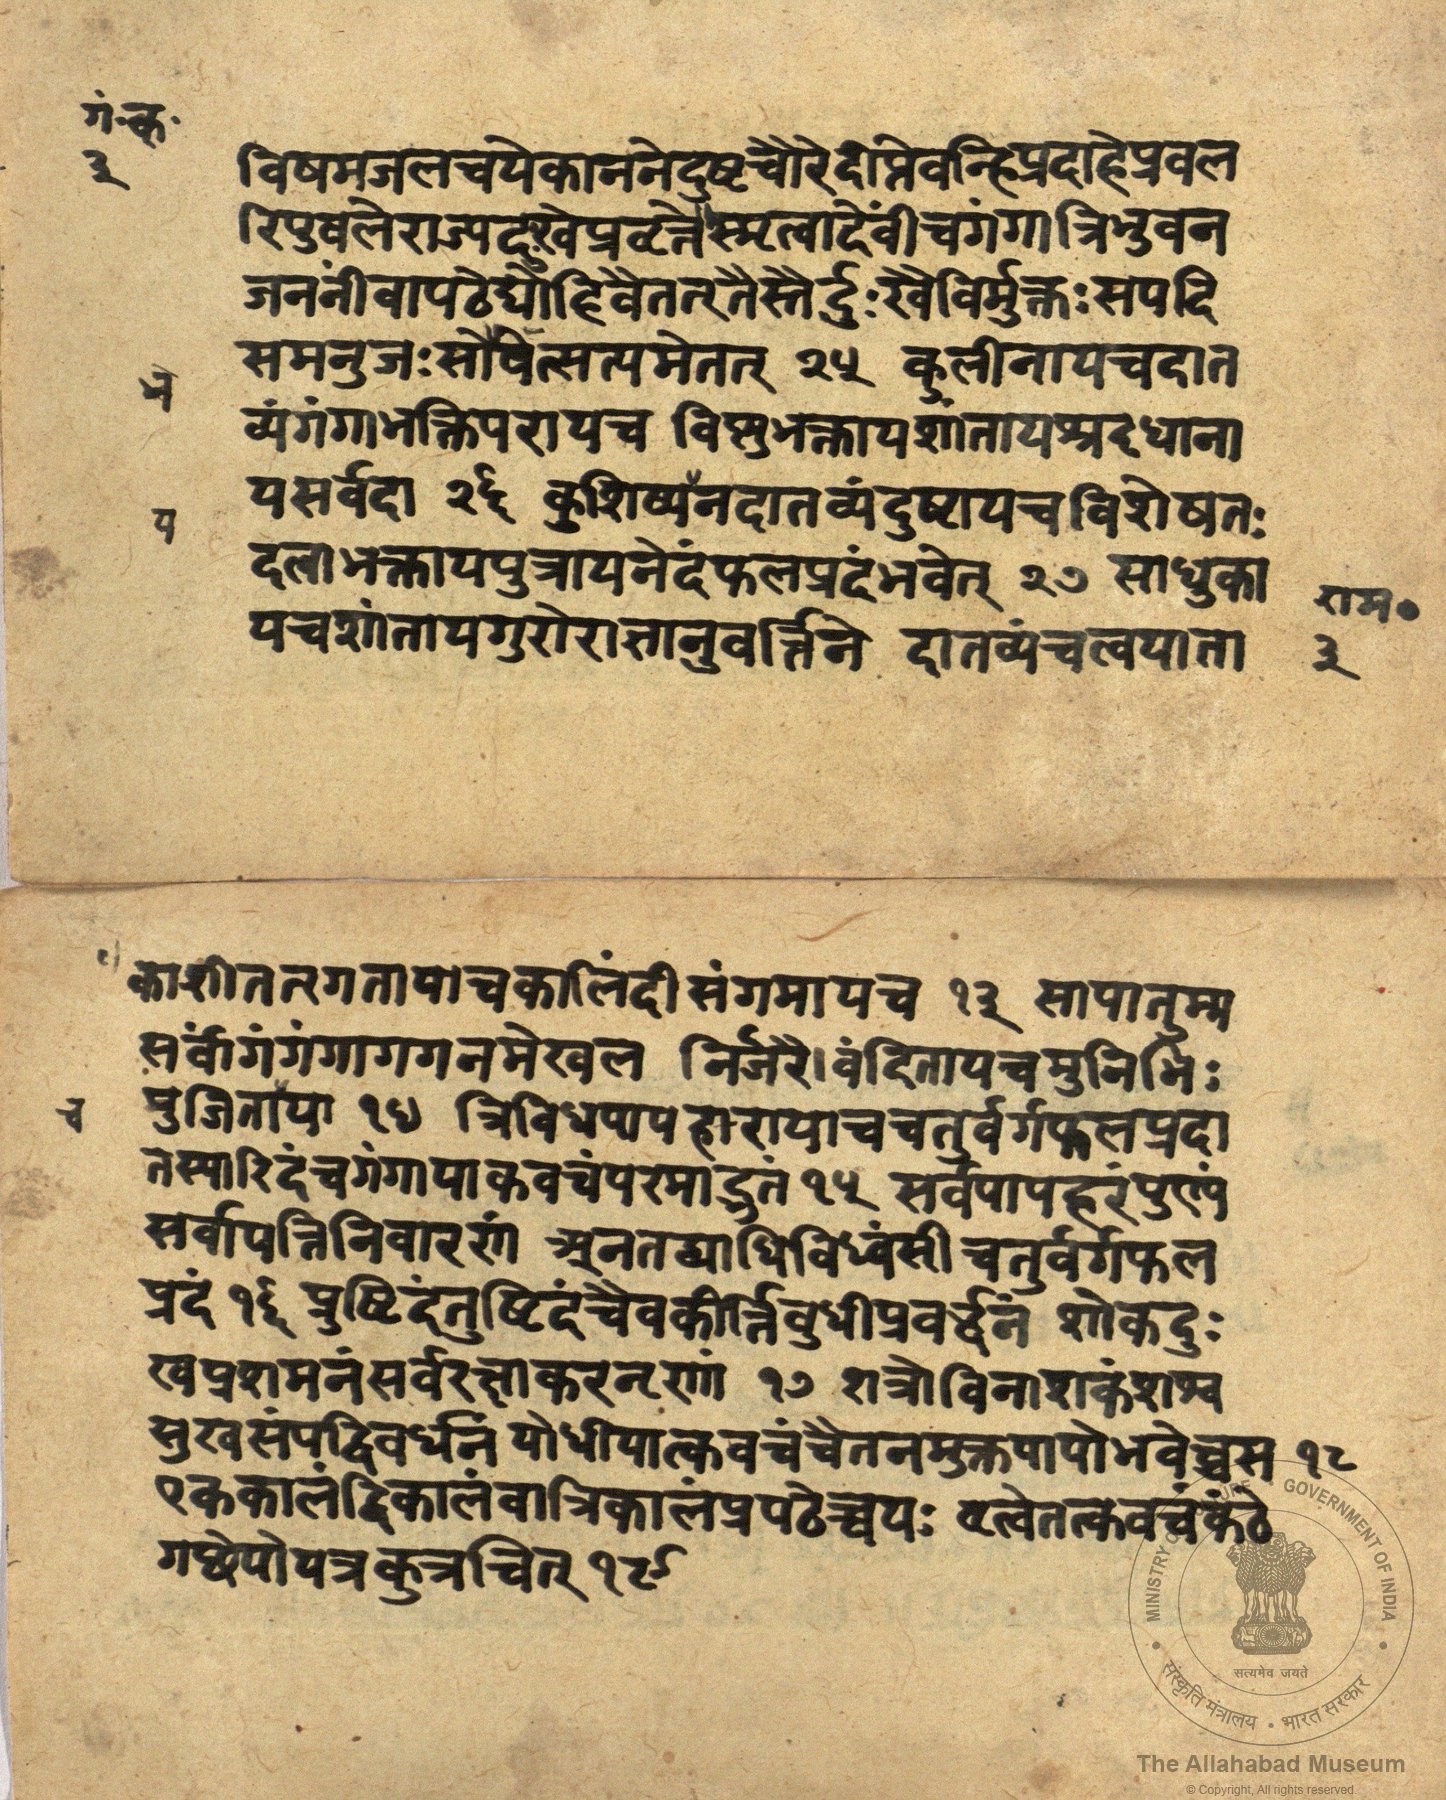 गं॰क॰
३
विषमजलचयेकाननेदुष्टचौरेदीप्तेवन्हिप्रदाहेप्रवल
रिपुषलेराज्यदुःखेप्रवृत्तेस्मृत्वादेवींचगंगात्रिभुवन
जननींवापठेद्यौहिवैतत्तैस्तैर्दुःखैविर्मुक्तःसपदि
समनुजःसोपित्सत्यमेतत् २५ कुलीनायचदात
भ
व्यंगंगाभक्तिपरायच विष्णुभक्तायशांतायश्रद्दधाना
यसर्वदा २६ कुशिष्यनदातव्यंदुष्टायचविशेषतः
य
दत्वाभक्तायपुत्रायनेदंफलप्रदंभवेत् २७ साधुका
यचशांतायगुरोराज्ञानुवर्त्तिने दातव्यंचत्वयाता
राम॰
३
काशीतत्रगतायाचकालिंदीसंगमायच १३ सापातुम्म
सर्वांगंगंगागगनमेखल निर्जरै।वंदितायचमुनिभिः
पुजिताया १४ त्रिविधपापहारायाचचतुर्वर्गफलप्रदा
च
तस्यारिदंचगंगायाकवचंपरमाद्भुतं १५ सर्वपापहरंपुण्यं
सर्वापत्तिनिवारणं अनतव्याधिविध्वंसीचतुर्वर्गफल
प्रदं १६ पुष्टिदंतुष्टिदंचैवकीर्त्तिबुधीप्रवर्द्धनं शोकदुः
खप्रशमनंसर्वरक्षाकरनृणां १७ शत्रोविनाशकंशश्व
सुखसंपद्विवर्धनं योधीयात्कवचंचैतनमुक्तपापोभवेच्चस १८
एककालंद्विकालंवात्रिकालंप्रपठेच्चयः धृत्वेतत्कवचंकंठे
गछेयोयत्रकुत्रचित् १९
MINISTRY OF CULTURE GOVERNMENT OF INDIA
सत्यमेव जयते
संस्कृति मंत्रालय • भारत सरकार
The Allahabad Museum
© Copyright, All rights reserved.